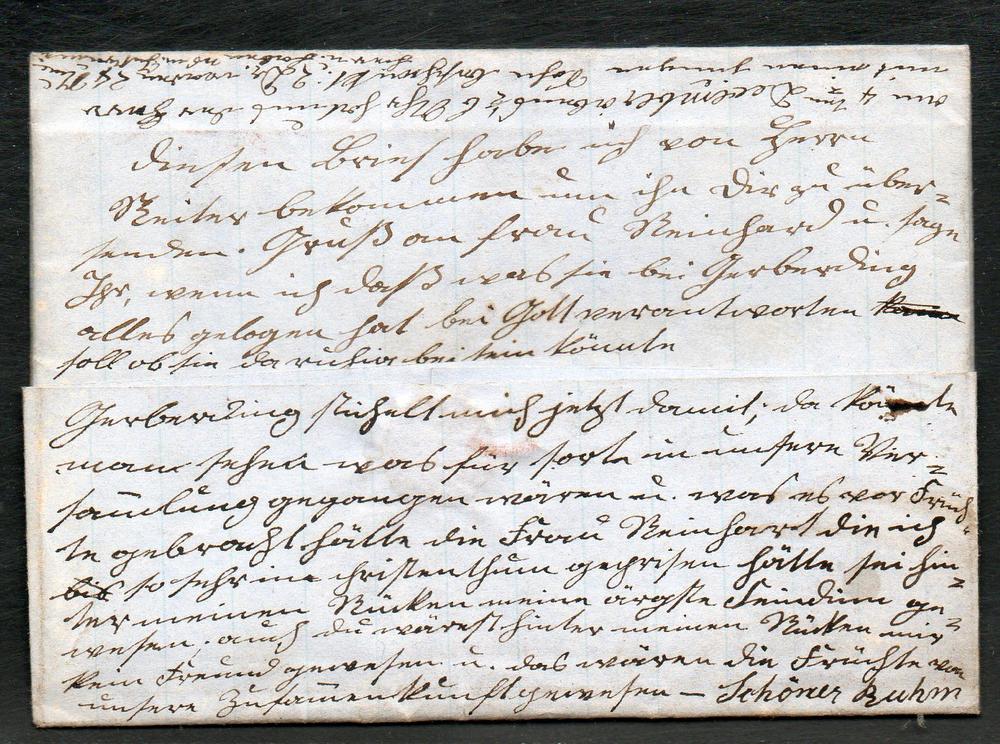 Diesen Brief habe ich von Herrn
Reiter bekommen um ihn Dir zu über-
senden. Gruß an Frau Reinhard u. sage
Ihr, wenn ich daß was sie bei Gerberding
alles gelogen hat bei Gott verantworten kann
soll ob sie da ruhig bei sein könnte
Gerberding stichelt mich jetzt damit; da könnte
man sehen was für sorte in unsere Ver-
samlung gegangen wären u. was es vor Früch-
te gebracht hätte die Frau Reinhart die ich
bis so sehr im christenthum geprisen hätte sei hin-
ter meinen Rücken meine ärgste Feindinn ge-
wesen; auch du wärest hinter meinen Rücken mir
kein Freund gewesen u. das wären die Früchte von
unsere Zusammenkunft gewesen – Schöner Ruhm